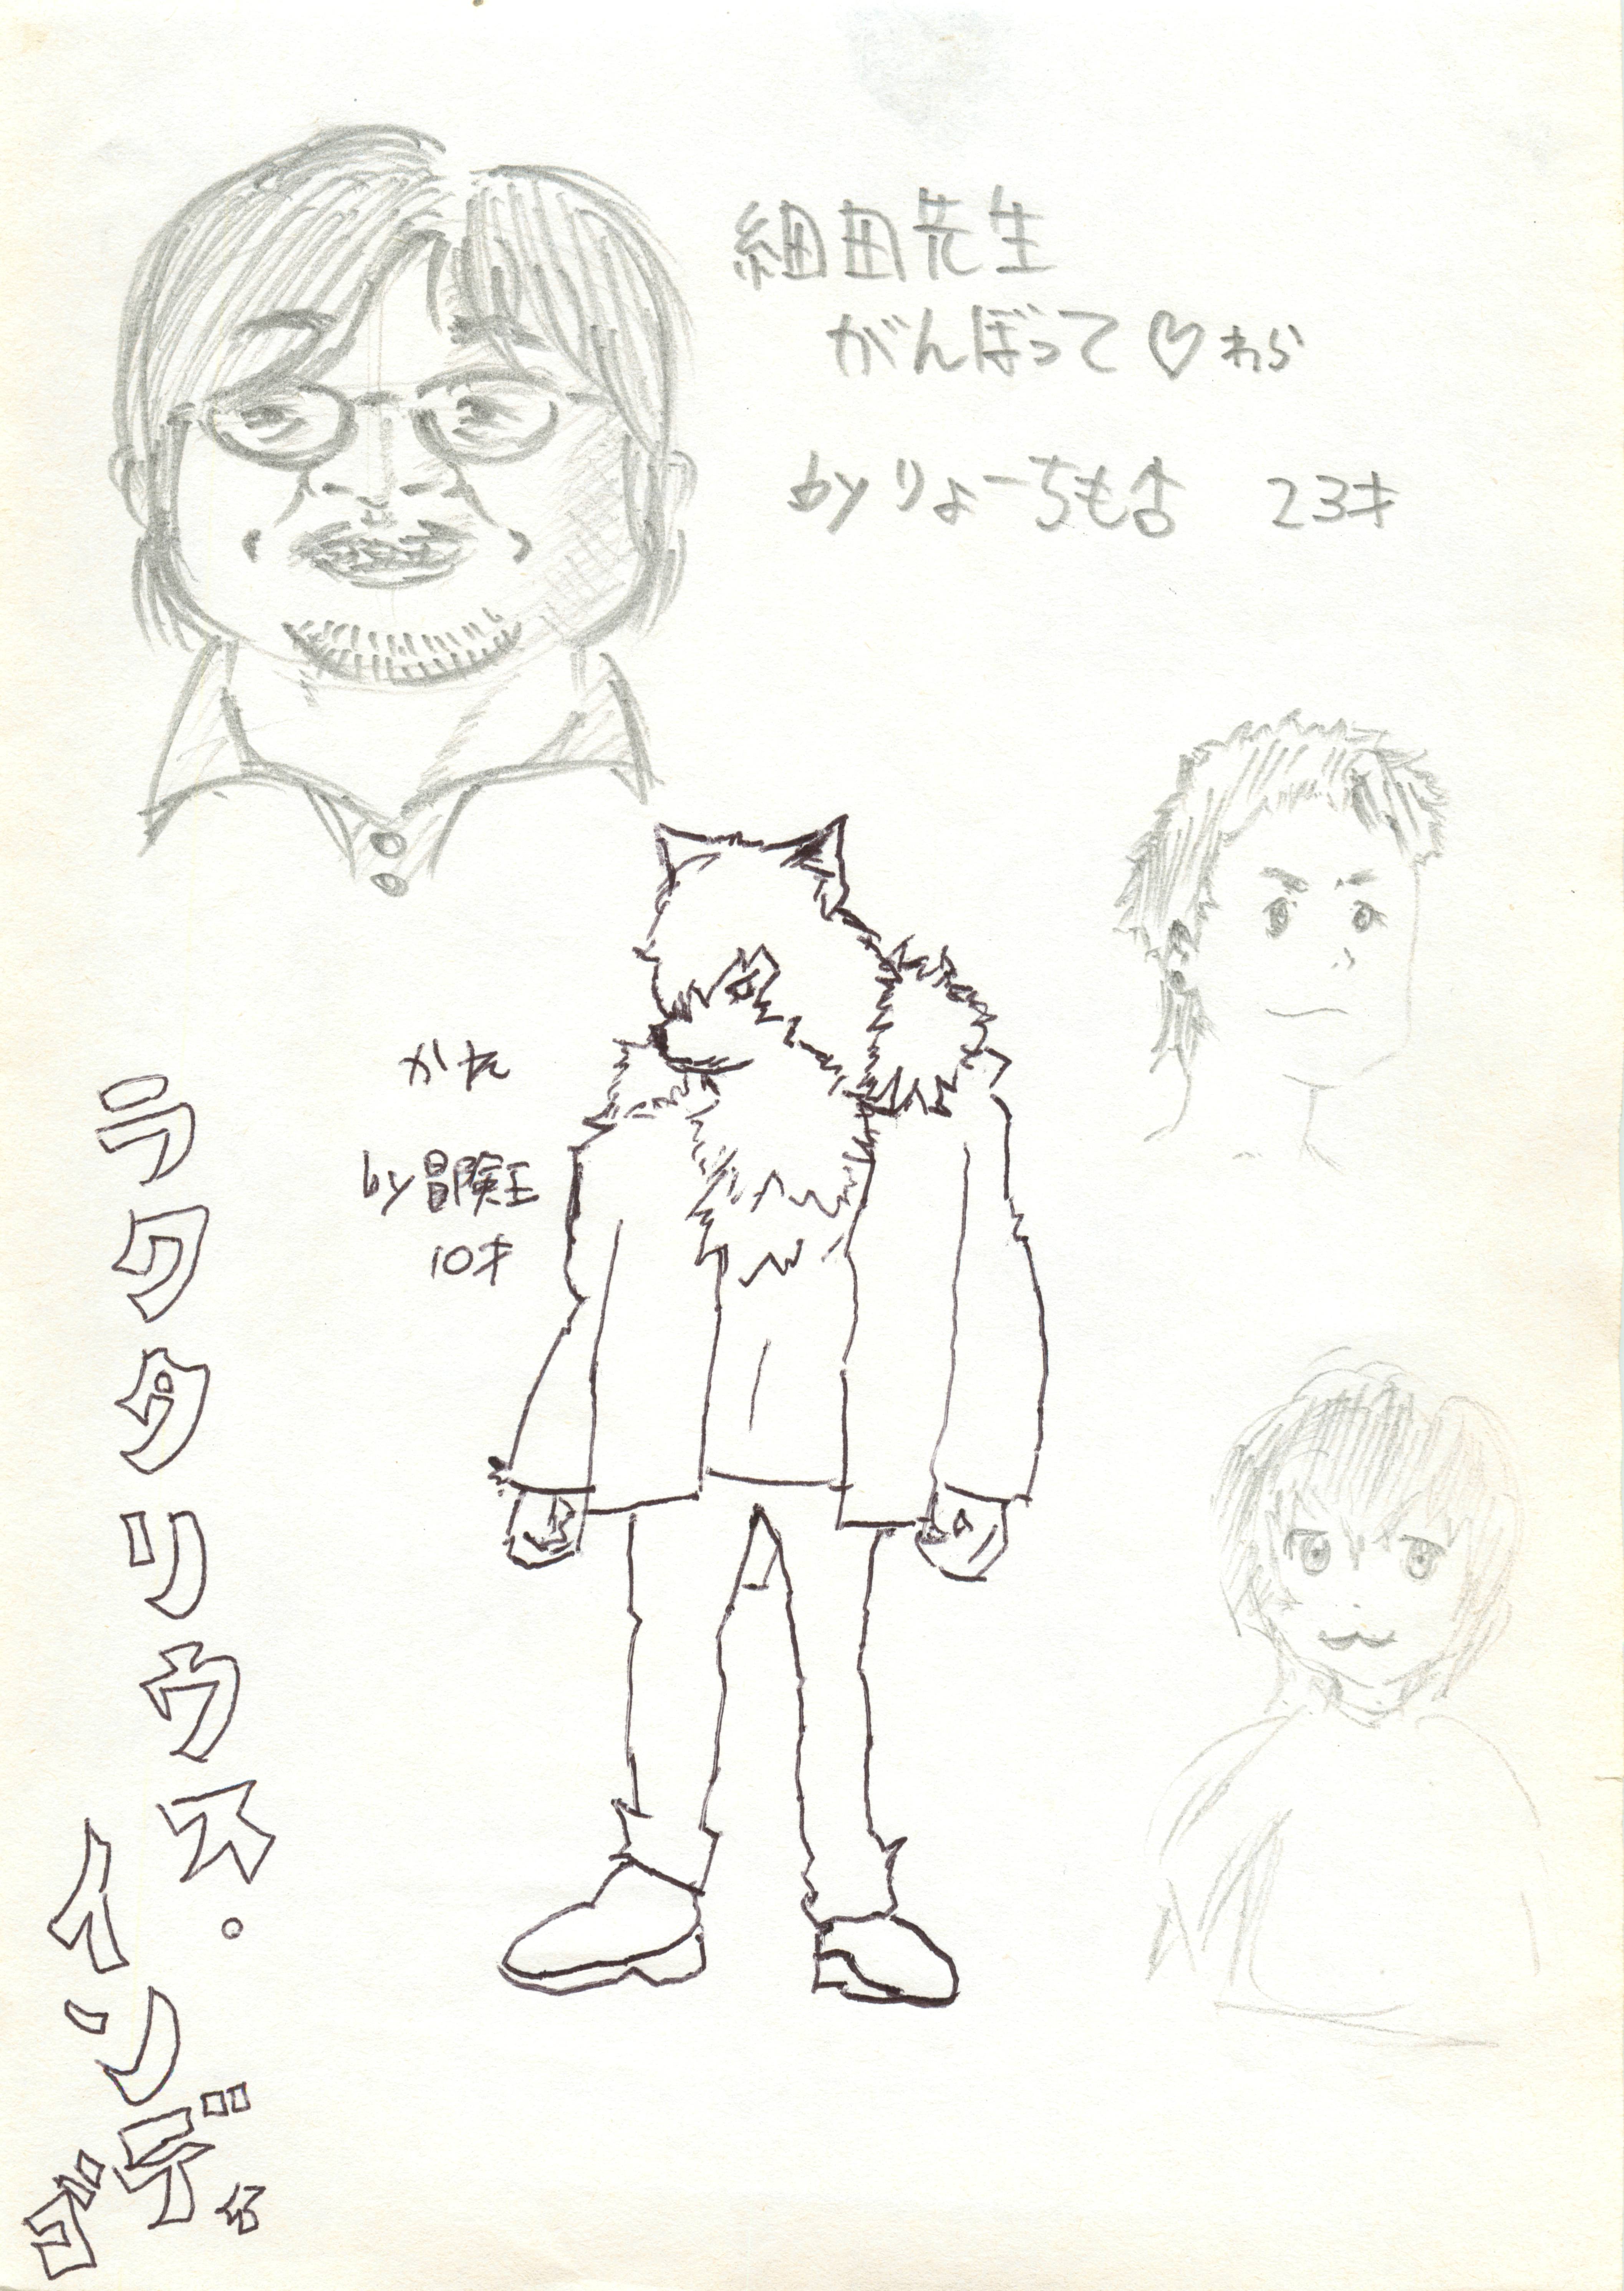 細田先生
がんばって♡わら
by りょーちも♂ 23才
かた
by冒険王
10才
ラクタリウス・
インディゴ